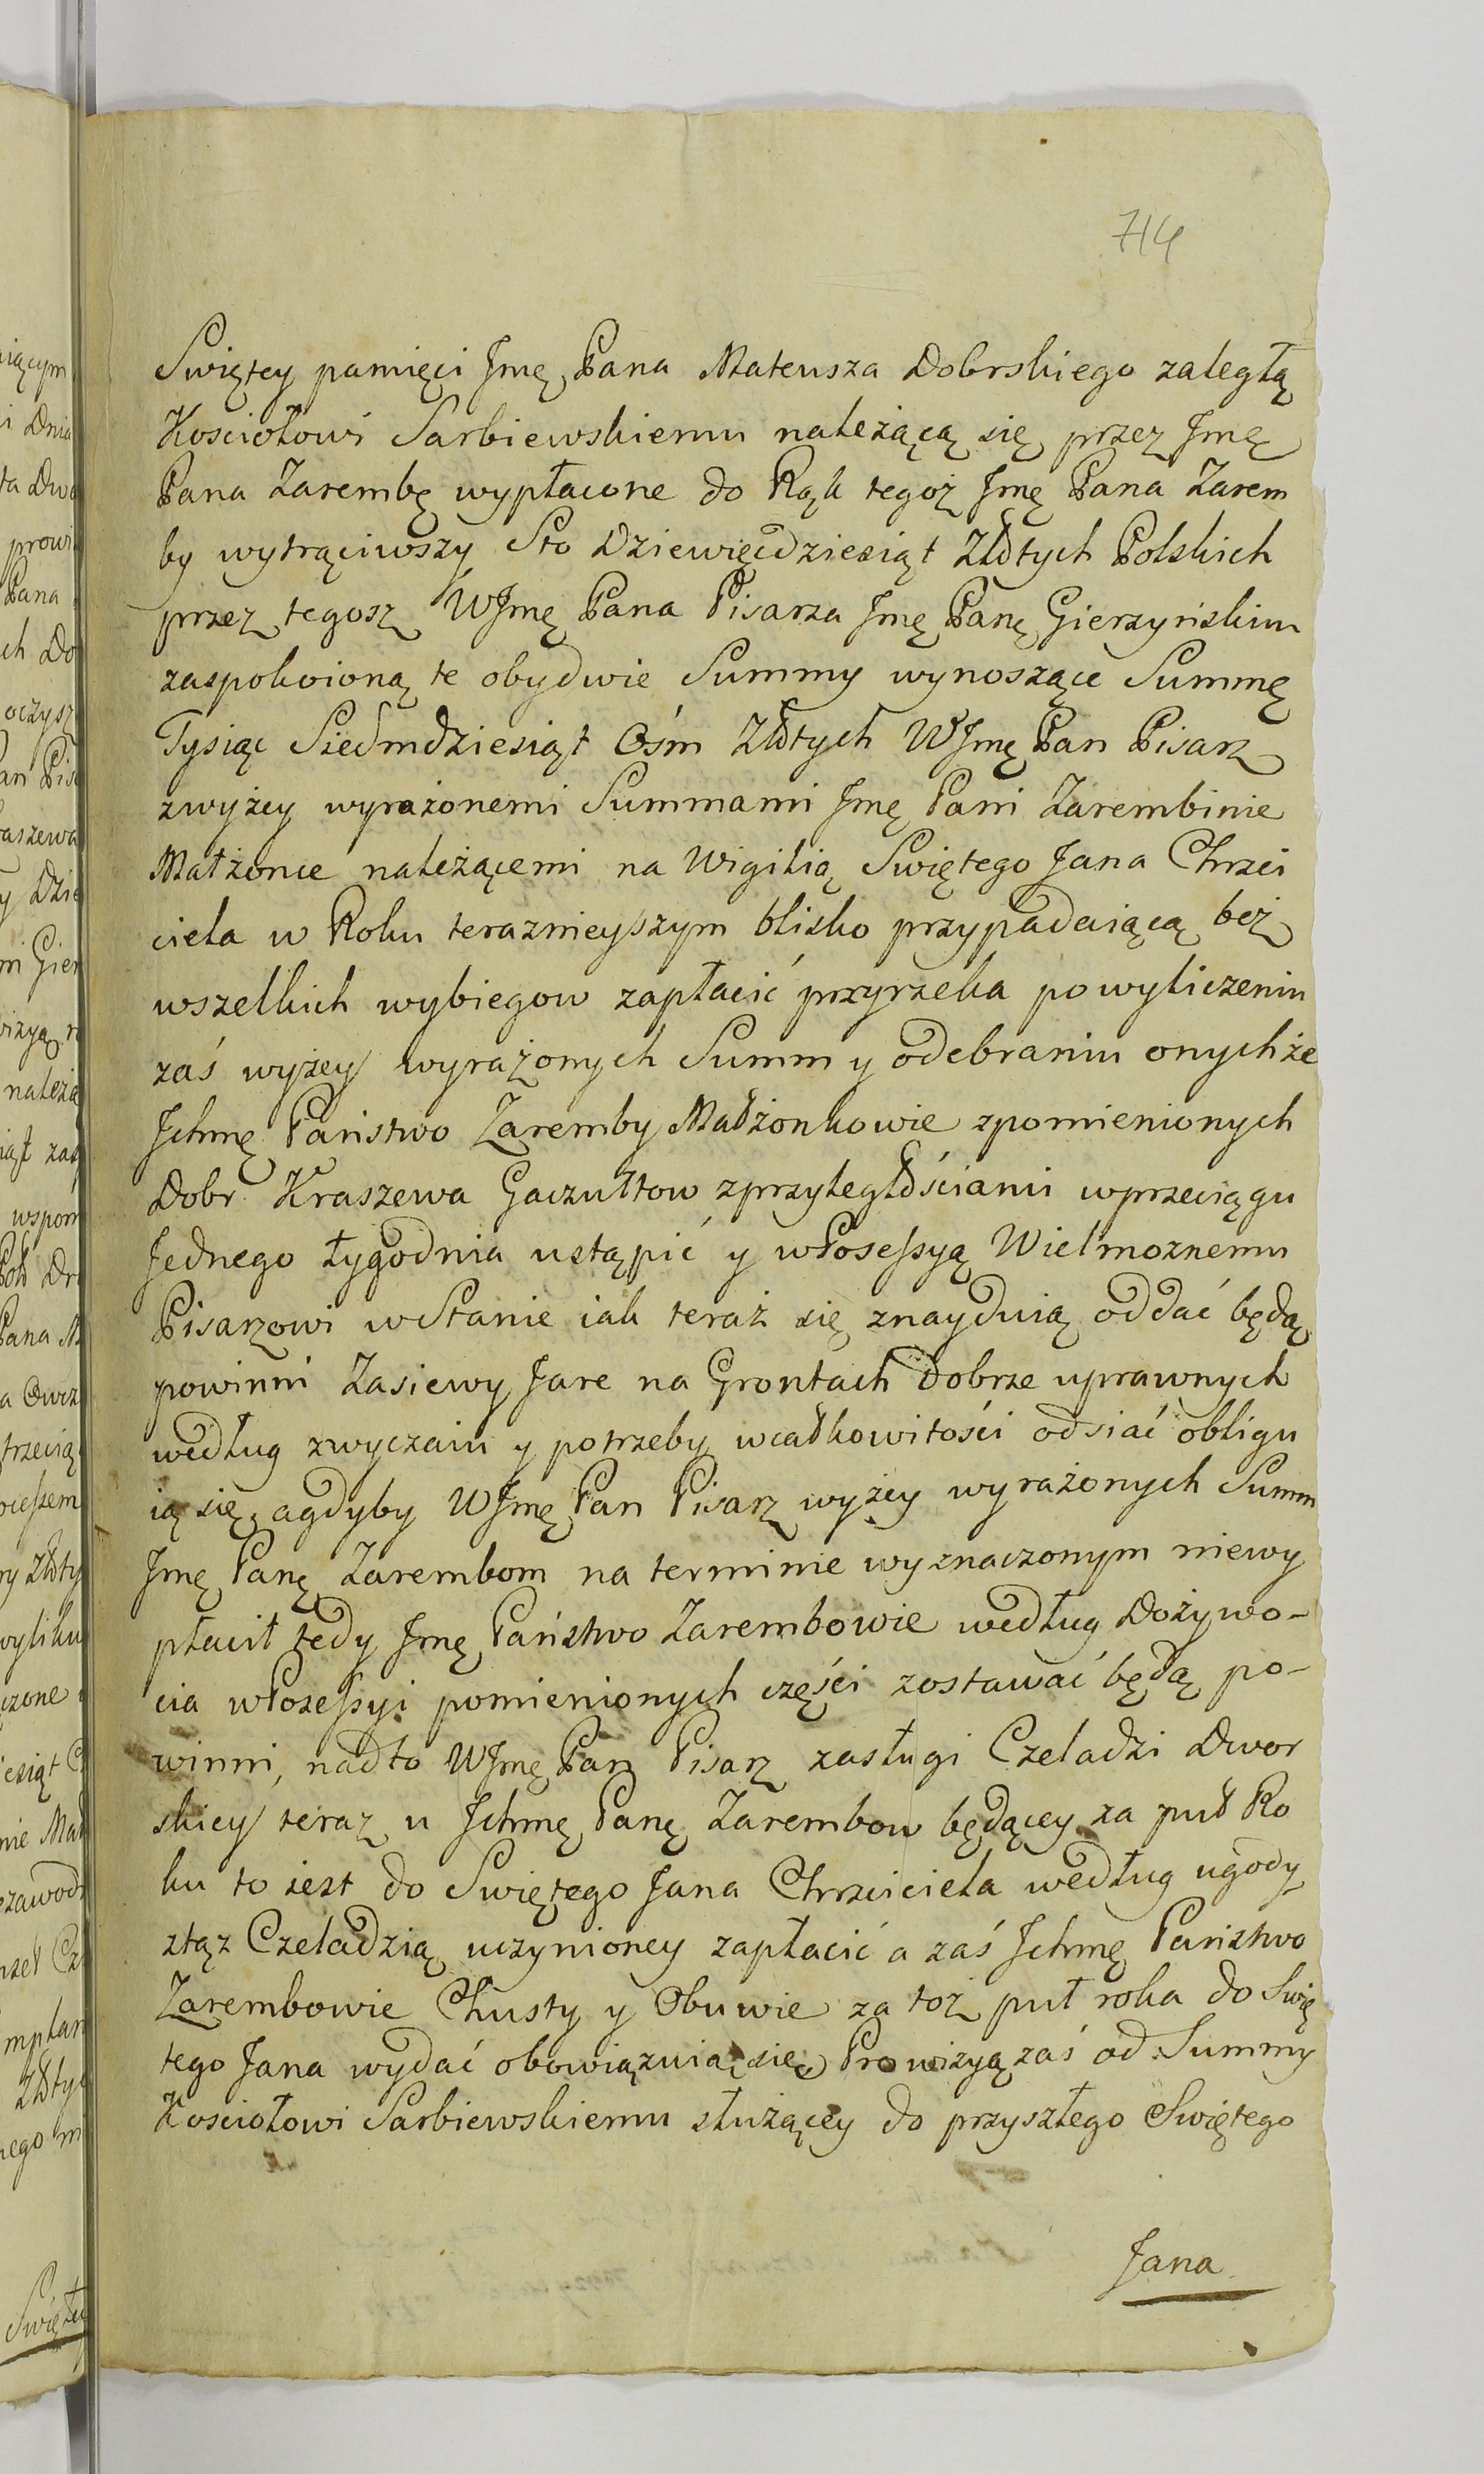 714
Swiętey pamięci Jmę Pana Mateusza Dobrskiego zaległą
Kosciołowi Sarbiewskiemu należącą się przez Jmę
Pana Zarembę wypłacone do Rąk tegoż Jmę Pana Zarem
by wytrąciwszy Sto Dziewięcdziesiąt Złotych Polskich
przez tegosz WJmę Pana Pisarza Jmę Panę Gierzyńskim
zaspokoioną te obydwie Summy wynoszące Summę
Tysiąc Siedmdziesiąt Ośm Złotych WJmę Pan Pisarz
zwyżey wyrażonemi Summami Jmę Pani Zarembinie
Małżonce należącemi na Wigilią Swiętego Jana Chrzci
ciela w Roku teraznieyszym blisko przypadaiącą beż
wszelkich wybiegow zapłacić przyrzeka po wyliczeniu
zaś wyżey wyrażonych Summ y odebraniu onychże
Jchmę Państwo Zaremby Małżonkowie zpomienionych
Dobr Kraszewa Gaczułtow zprzyległościami wprzeciągu
Jednego tygodnia ustąpić y wPossessyą Wielmoznemu
Pisarzowi wStanie iak teraż się znayduią oddać będą
powinni Zasiewy Jare na Grontach Dobrze uprawnych
według zwyczaiu y potrzeby wcałkowitości odsiać obligu
ią się, agdyby WJmę Pan Pisarz wyżey wyrażonych Summ
Jmę Panę Zarembom na terminie wyznaczonym niewy
płacił tedy Jmę Państwo Zarembowie według Dożywo-
cia wPossessyi pomienionych częśći zostawać będą po-
winni, nadto WJmę Pan Pisarz zasługi Czeladzi Dwor
skiey teraz u Jchmę Panę Zarembow będącey za puł Ro
ku to iest do Swiętego Jana Chrzciciela według ugody
ztąż Czeladzią uczynioney zapłacić a zaś Jchmę Państwo
Zarembowie Chusty y Obuwie za toż puł roka do Swię
tego Jana wydać obowiązuią się, Prowizyą zaś od Summy
Kosciołowi Sarbiewskiemu służącey do przyszłego Swiętego
Jana